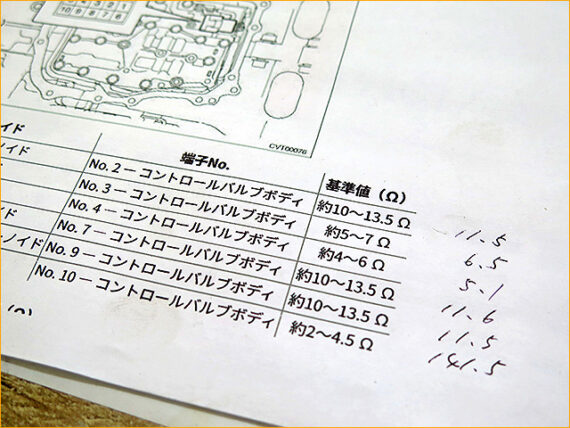 10 9 8 7 6
CVT00076
イド 端子No. 基準値（Ω）
ノイド No. 2 ー コントロールバルブボディ 約10～13.5 Ω 11.5
No. 3 ー コントロールバルブボディ 約5～7 Ω 6.5
No. 4 ー コントロールバルブボディ 約4～6 Ω 5.1
イド No. 7 ー コントロールバルブボディ 約10～13.5 Ω 11.6
ーノイド No. 9 ー コントロールバルブボディ 約10～13.5 Ω 11.5
No. 10 ー コントロールバルブボディ 約2～4.5 Ω 141.5